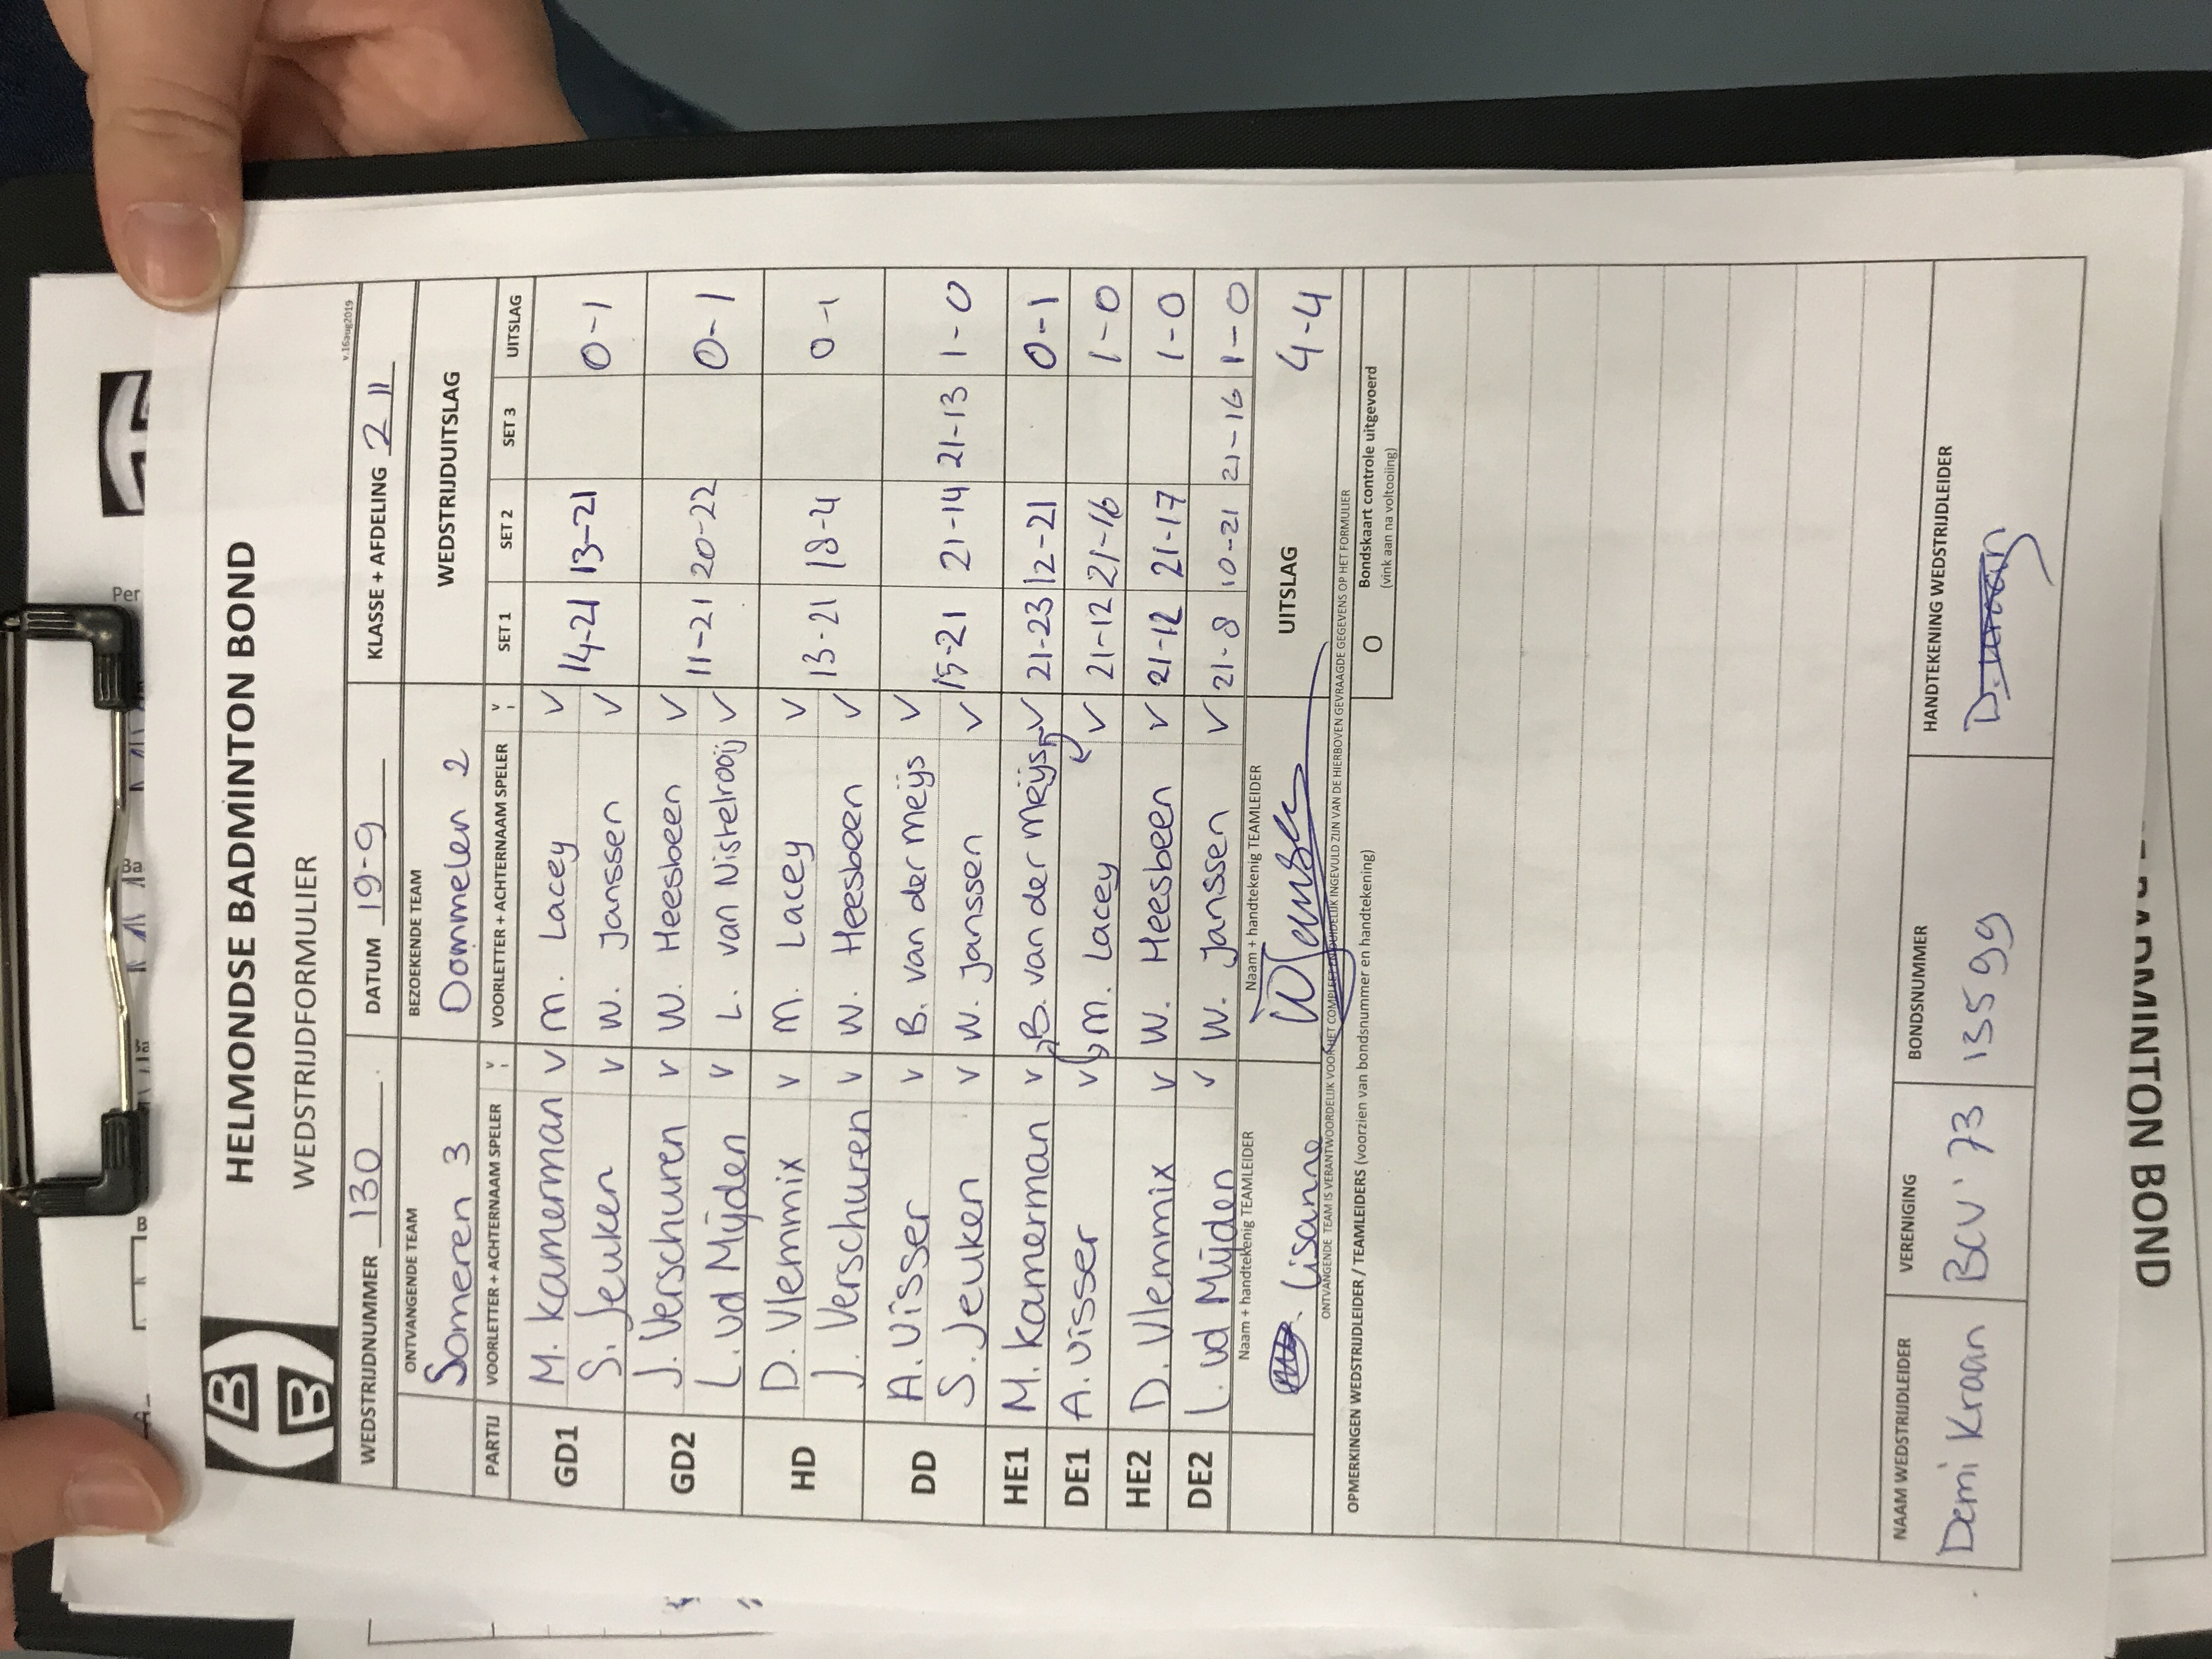 HELMONDSE BADMINTON BOND
WEDSTRIJDFORMULIER
v.16aug2019
WEDSTRIJDNUMMER 130 DATUM 19-9 KLASSE + AFDELING 2 11
ONTVANGENDE TEAM BEZOEKENDE TEAM WEDSTRIJDUITSLAG
Someren 3 Dommelen 2
PARTIJ VOORLETTER + ACHTERNAAM SPELER V VOORLETTER + ACHTERNAAM SPELER V SET 1 SET 2 SET 3 UITSLAG
GD1 M. Kamerman V M. Lacey V
S. Jeuken V W. Janssen V 14-21 13-21 0-1
GD2 J. Verschuren V W. Heesbeen V
L. vd Mijden V L. van Nistelrooij V 11-21 20-22 0-1
HD D. Vlemmix V M. Lacey V
J. Verschuren V W. Heesbeen V 13-21 18-21 0-1
DD A. Visser V B. van der Meijs V
S. Jeuken V W. Janssen V 15-21 21-14 21-13 1-0
HE1 M. Kamerman V B. van der Meijs V 21-23 12-21 0-1
DE1 A. Visser V M. Lacey V 21-12 21-16 1-0
HE2 D. Vlemmix V W. Heesbeen V 21-12 21-17 1-0
DE2 L. vd Mijden V W. Janssen V 21-8 10-21 21-16 1-0
Naam + handtekenig TEAMLEIDER Naam + handtekenig TEAMLEIDER UITSLAG 4-4
Lisanne
ONTVANGENDE TEAM IS VERANTWOORDELIJK VOOR HET COMPLEET EN DUIDELIJK INGEVULD ZIJN VAN DE HIERBOVEN GEVRAAGDE GEGEVENS OP HET FORMULIER
OPMERKINGEN WEDSTRIJDLEIDER / TEAMLEIDERS (voorzien van bondsnummer en handtekening)
O Bondskaart controle uitgevoerd
(vink aan na voltooiing)
NAAM WEDSTRIJDLEIDER VERENIGING BONDSNUMMER HANDTEKENING WEDSTRIJDLEIDER
Demi Kraan BCV'73 13599
MINTON BOND
Per
Ba